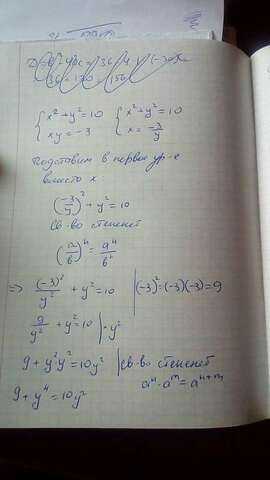 {x²+y²=10 {x²+y²=10
{xy=-3 {x=-3/y
Подставим в первое ур-е
вместо x
(-3/y)²+y²=10
Св-во степеней
(a/b)ⁿ=aⁿ/bⁿ
⇒ (-3)²/y²+y²=10 | (-3)²=(-3)(-3)=9
9/y²+y²=10 | ·y²
9+y²y²=10y² | Св-во степеней
9+y⁴=10y² aⁿ·aᵐ=aⁿ⁺ᵐ